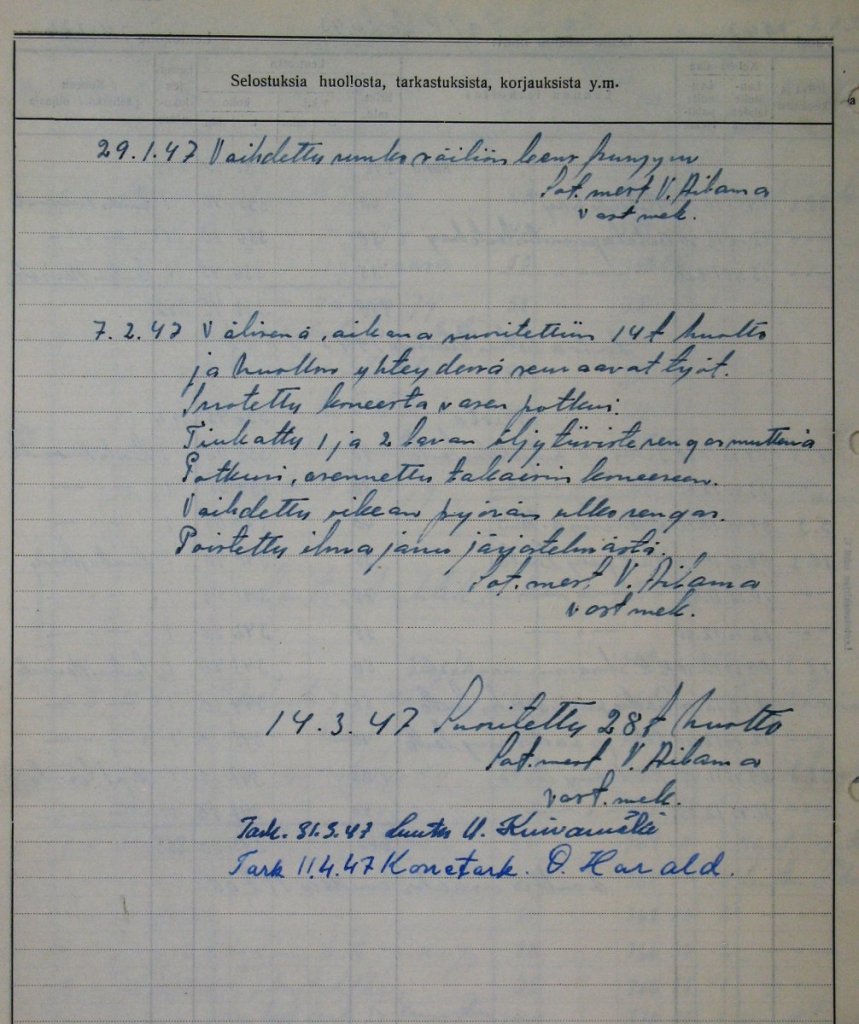 Selostuksia huollosta, tarkastuksista, korjauksista y.m.
29.1.47 Vaihdettu runko säiliön
Sot. mest V. Ailama
vast mek.
7.2.47 Välisenä, aikana suoritettiin 14t huolto
ja huollon yhteydessä seuraavat työt.
Irroitettu koneesta vasen potkuri.
Tiukattu 1 ja 2 lavan öljytiivisterengasmuttereita
Potkuri, asennettu takaisin koneeseen.
Vaihdettu oikean pyörän ulkorengas.
Poistettu ilma jarru järjestelmästä.
Sot. mest. V. Ailama
vast mek.
14.3.47 Suoritettu 28t huolto
Sot. mest V. Ailama
vast. mek.
Tark. 31.3.47 U. Kuivamäki
Tark 11.4.47 Konetark. O. Harald.